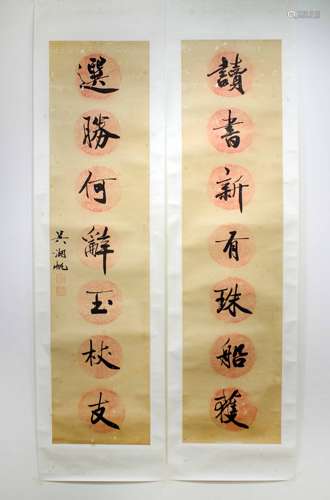 讀書新有珠船獲
選勝何辭玉杖支
吳湖帆